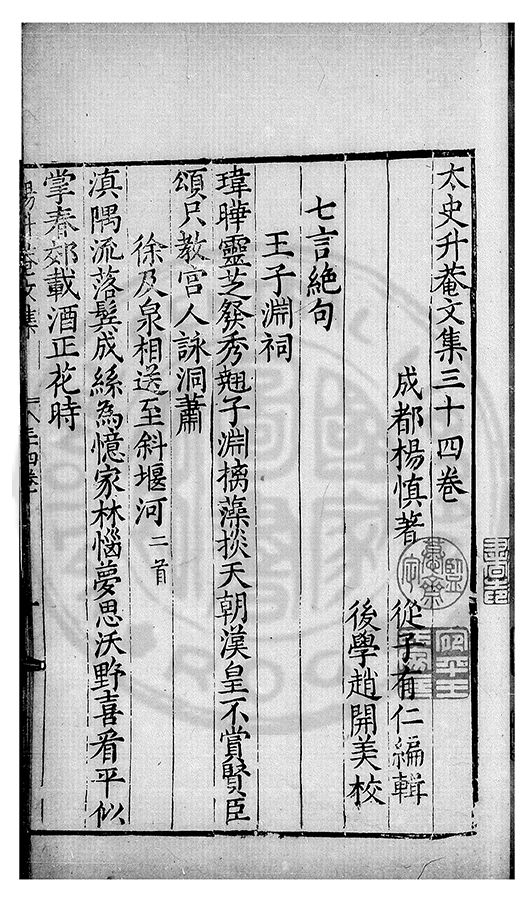 太史升菴文集三十四卷
成都楊慎著 從子有仁編輯
後學趙開美校
七言絕句
王子淵祠
瑋曄靈芝發秀翹子淵摛藻掞天朝漢皇不賞賢臣
頌只教宫人詠洞蕭
徐及泉相送至斜堰河二首
滇隅流落鬂成絲為憶家林惱夢思沃野喜看平似
掌春郊載酒正花時